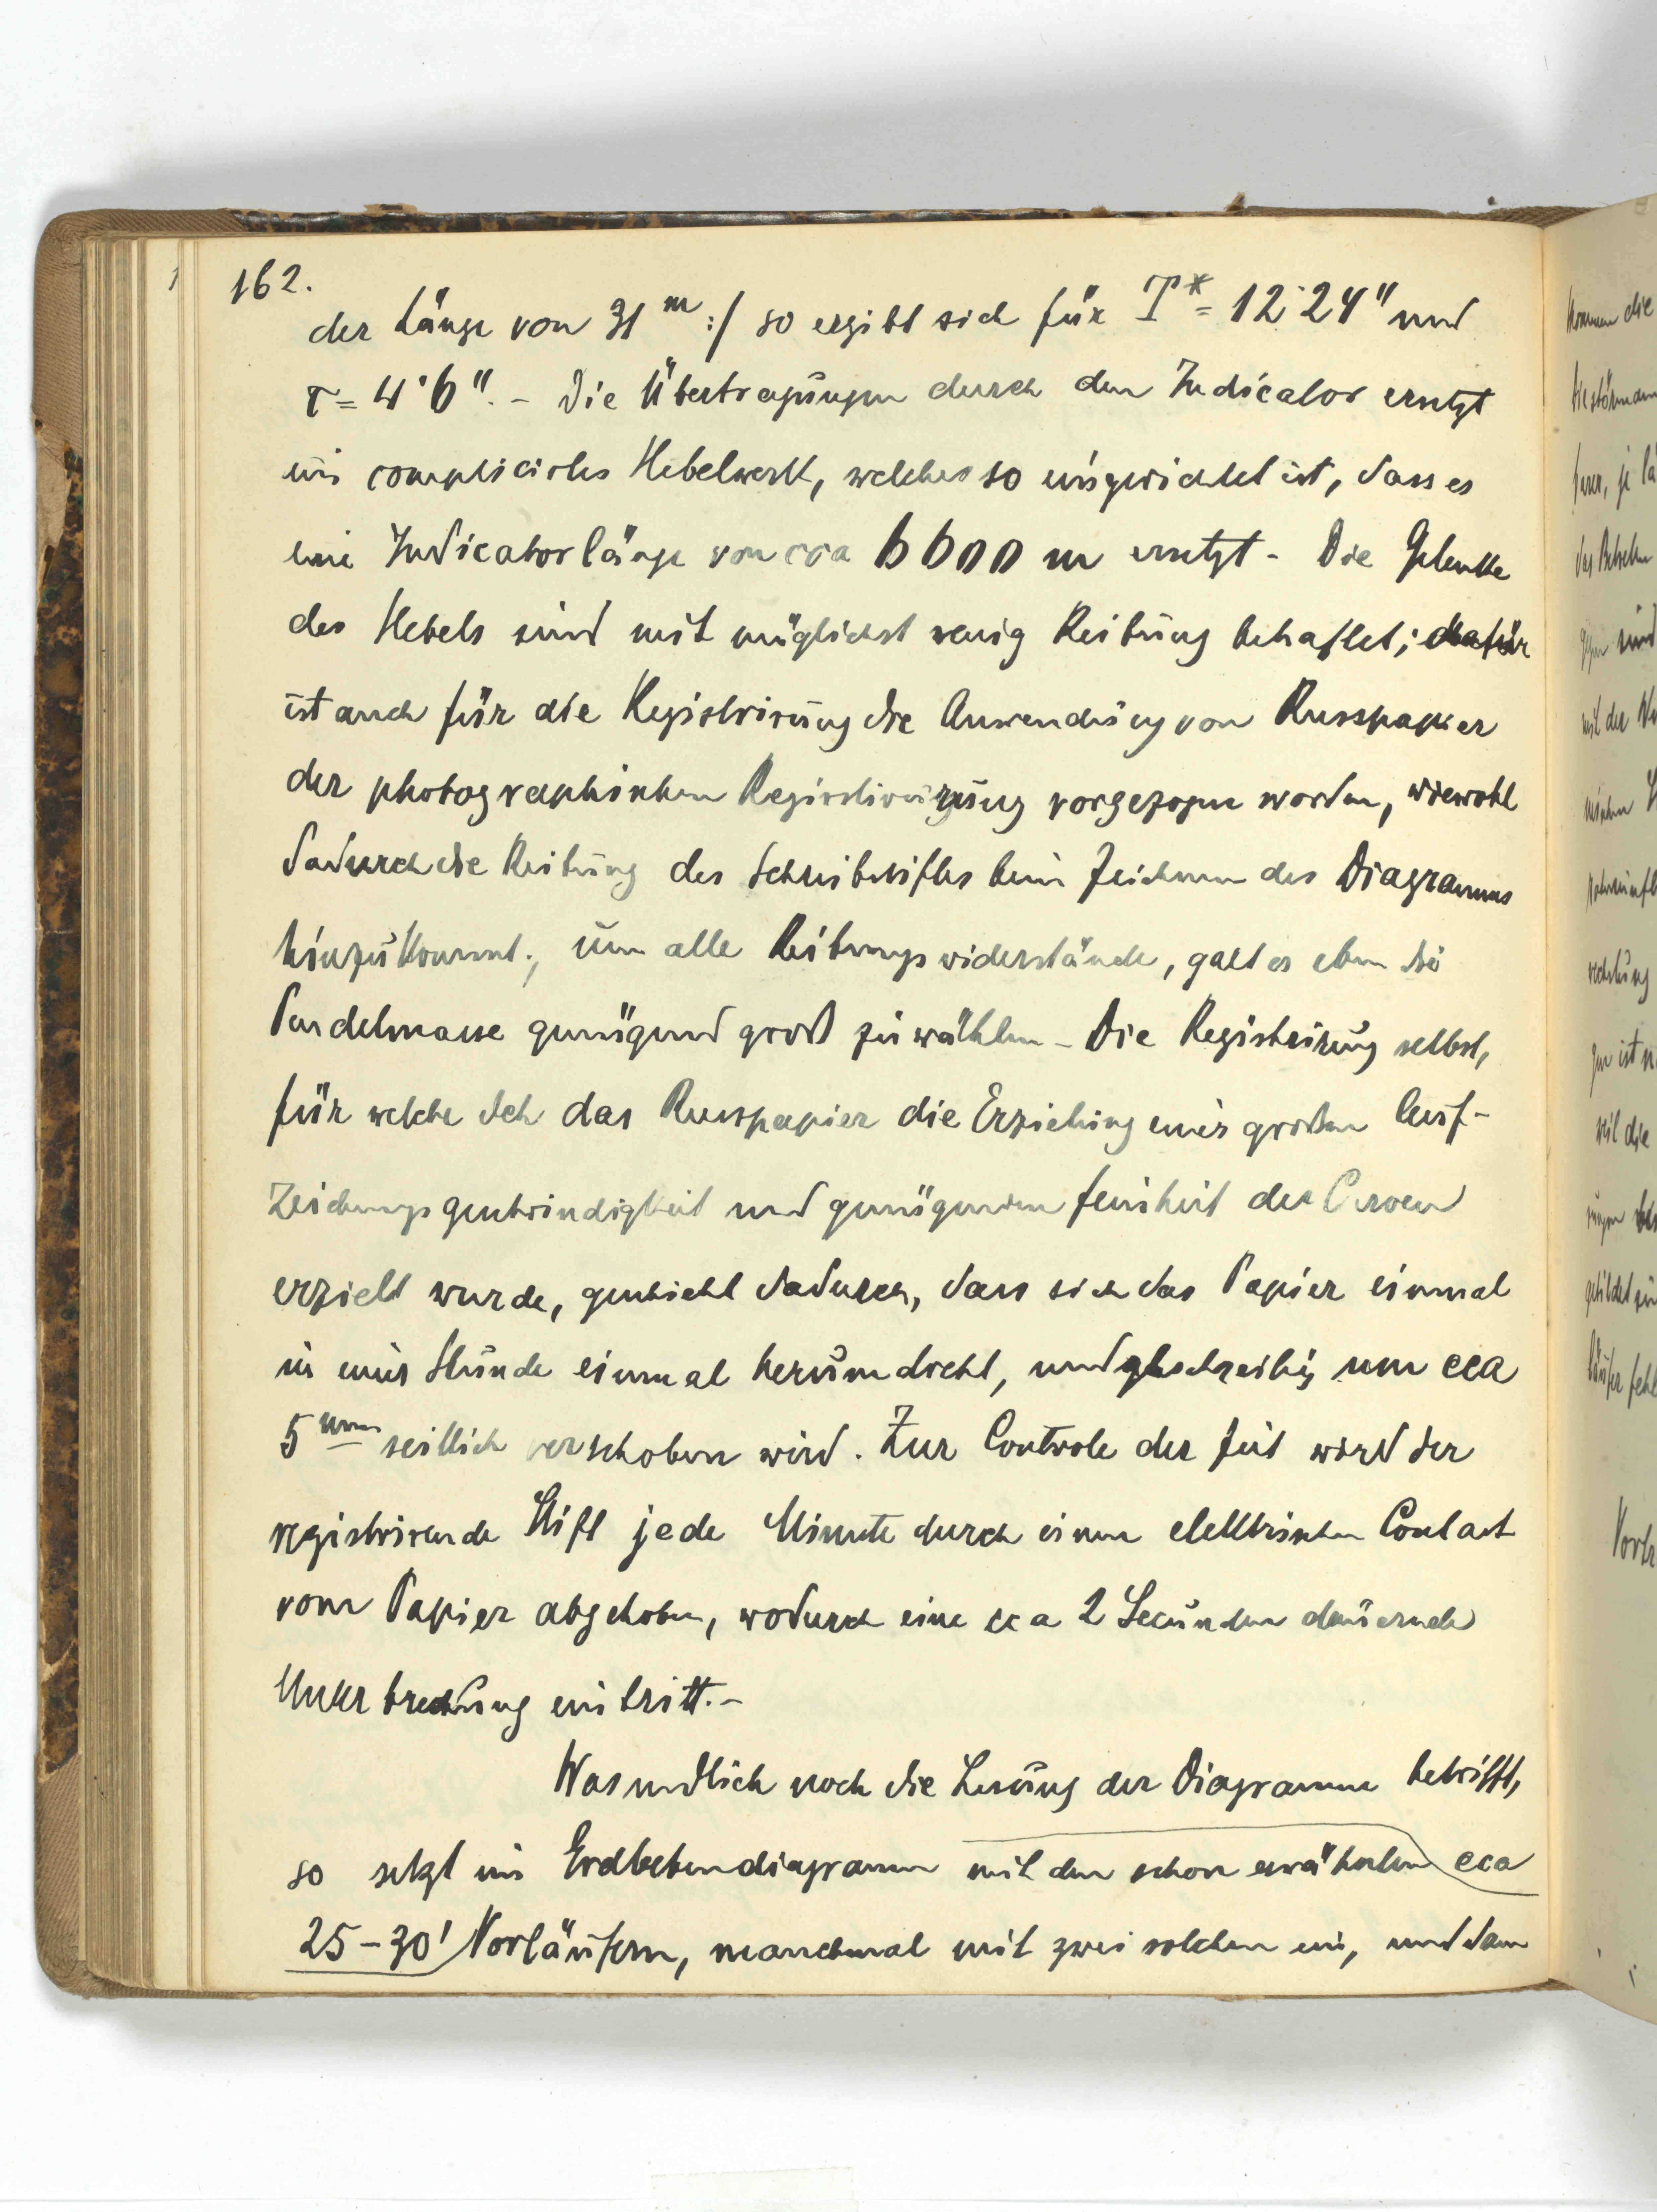 162.
der Länge von 31 m :/ so ergibt sich für T* = 12·24" und
τ = 4·6". - Die Übertragungen durch den Indicator ersetzt
ein complicirtes Hebelwerk, welches so eingerichtet ist, dass es
eine Indicatorlänge von cca 6600 m ersetzt - Die Gelenke
des Hebels sind mit möglichst wenig Reibung behaftet; dafür
ist auch für die Registrirung die Anwendung von Russpapier
der photographischen Registrirung vorgezogen worden, wiewohl
dadurch die Reibung des Schreibstiftes beim Zeichnen des Diagramms
hinzukommt.; um alle Reibungswiderstände, galt es eben die
Pendelmasse genügend groß zu wählen - Die Registrirung selbst,
für welche sich das Russpapier die Erziehung einer großen Auf-
Zeichnungsgeschwindigkeit und genügenden Feinheit der Curven
erzielt wurde, geschieht dadurch, dass sich das Papier einmal
in einer Stunde einmal herumdreht, und gleichzeitig um cca
5 mm seitlich verschoben wird. Zur Controle der Zeit wird der
registrirende Stift jede Minute durch einen elektrischen Contact
vom Papier abgehoben, wodurch eine cca 2 Secunden dauernde
Unterbrechung eintritt.-
Was endlich noch die Lesung der Diagramme betrifft,
so setzt ein Erdbebendiagramm mit den schon erwähnten cca
25-30' Vorläufern, manchmal mit zwei solchen ein, und dann